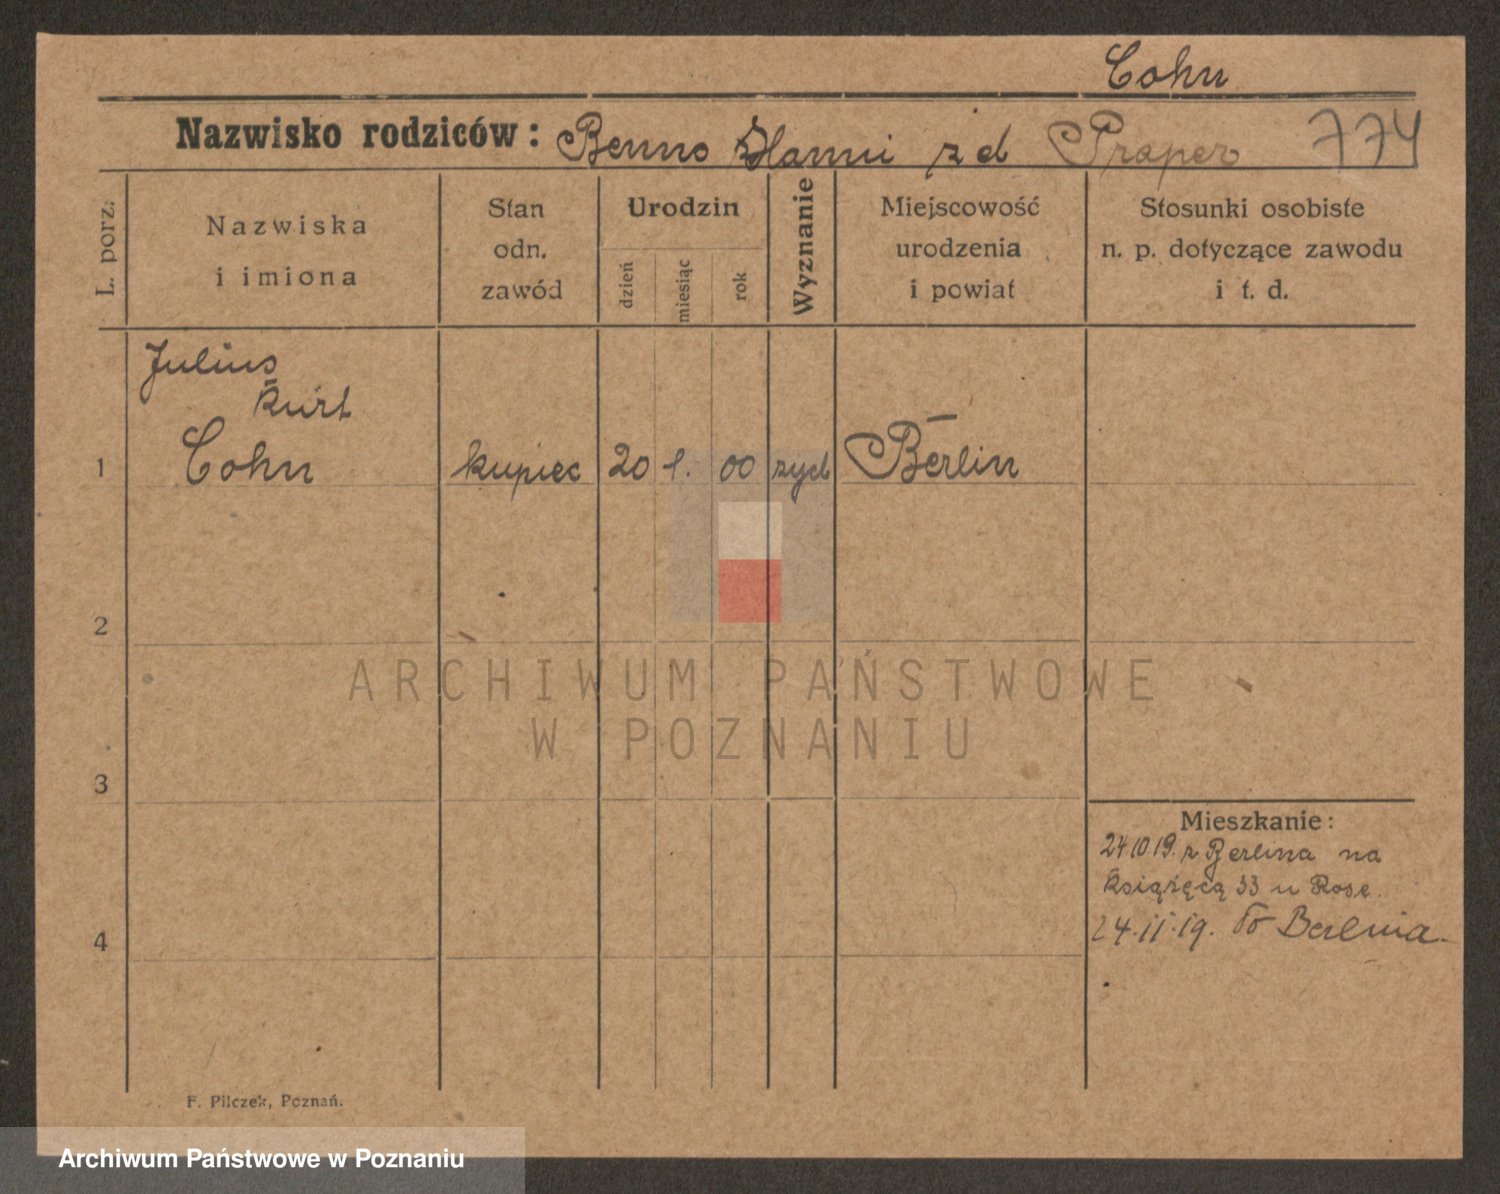 Cohn
Nazwisko rodziców: Benno Hanni z d Praper 774
L. porz.
Nazwiska
i imiona
Stan
odn.
zawód
Urodzin
dzień
miesiąc
rok
Wyznanie
Miejscowość
urodzenia
i powiat
Stosunki osobiste
n. p. dotyczące zawodu
i t. d.
Julius
Kurt
1 Cohn kupiec 20 1. 00 żyd Berlin
2
ARCHIWUM PAŃSTWOWE
W POZNANIU
3
Mieszkanie:
24 10 19. z Berlina na
Książęcą 33 u Rose.
4 24.11.19. Berlina.
F. Pilczek, Poznań.
Archiwum Państwowe w Poznaniu